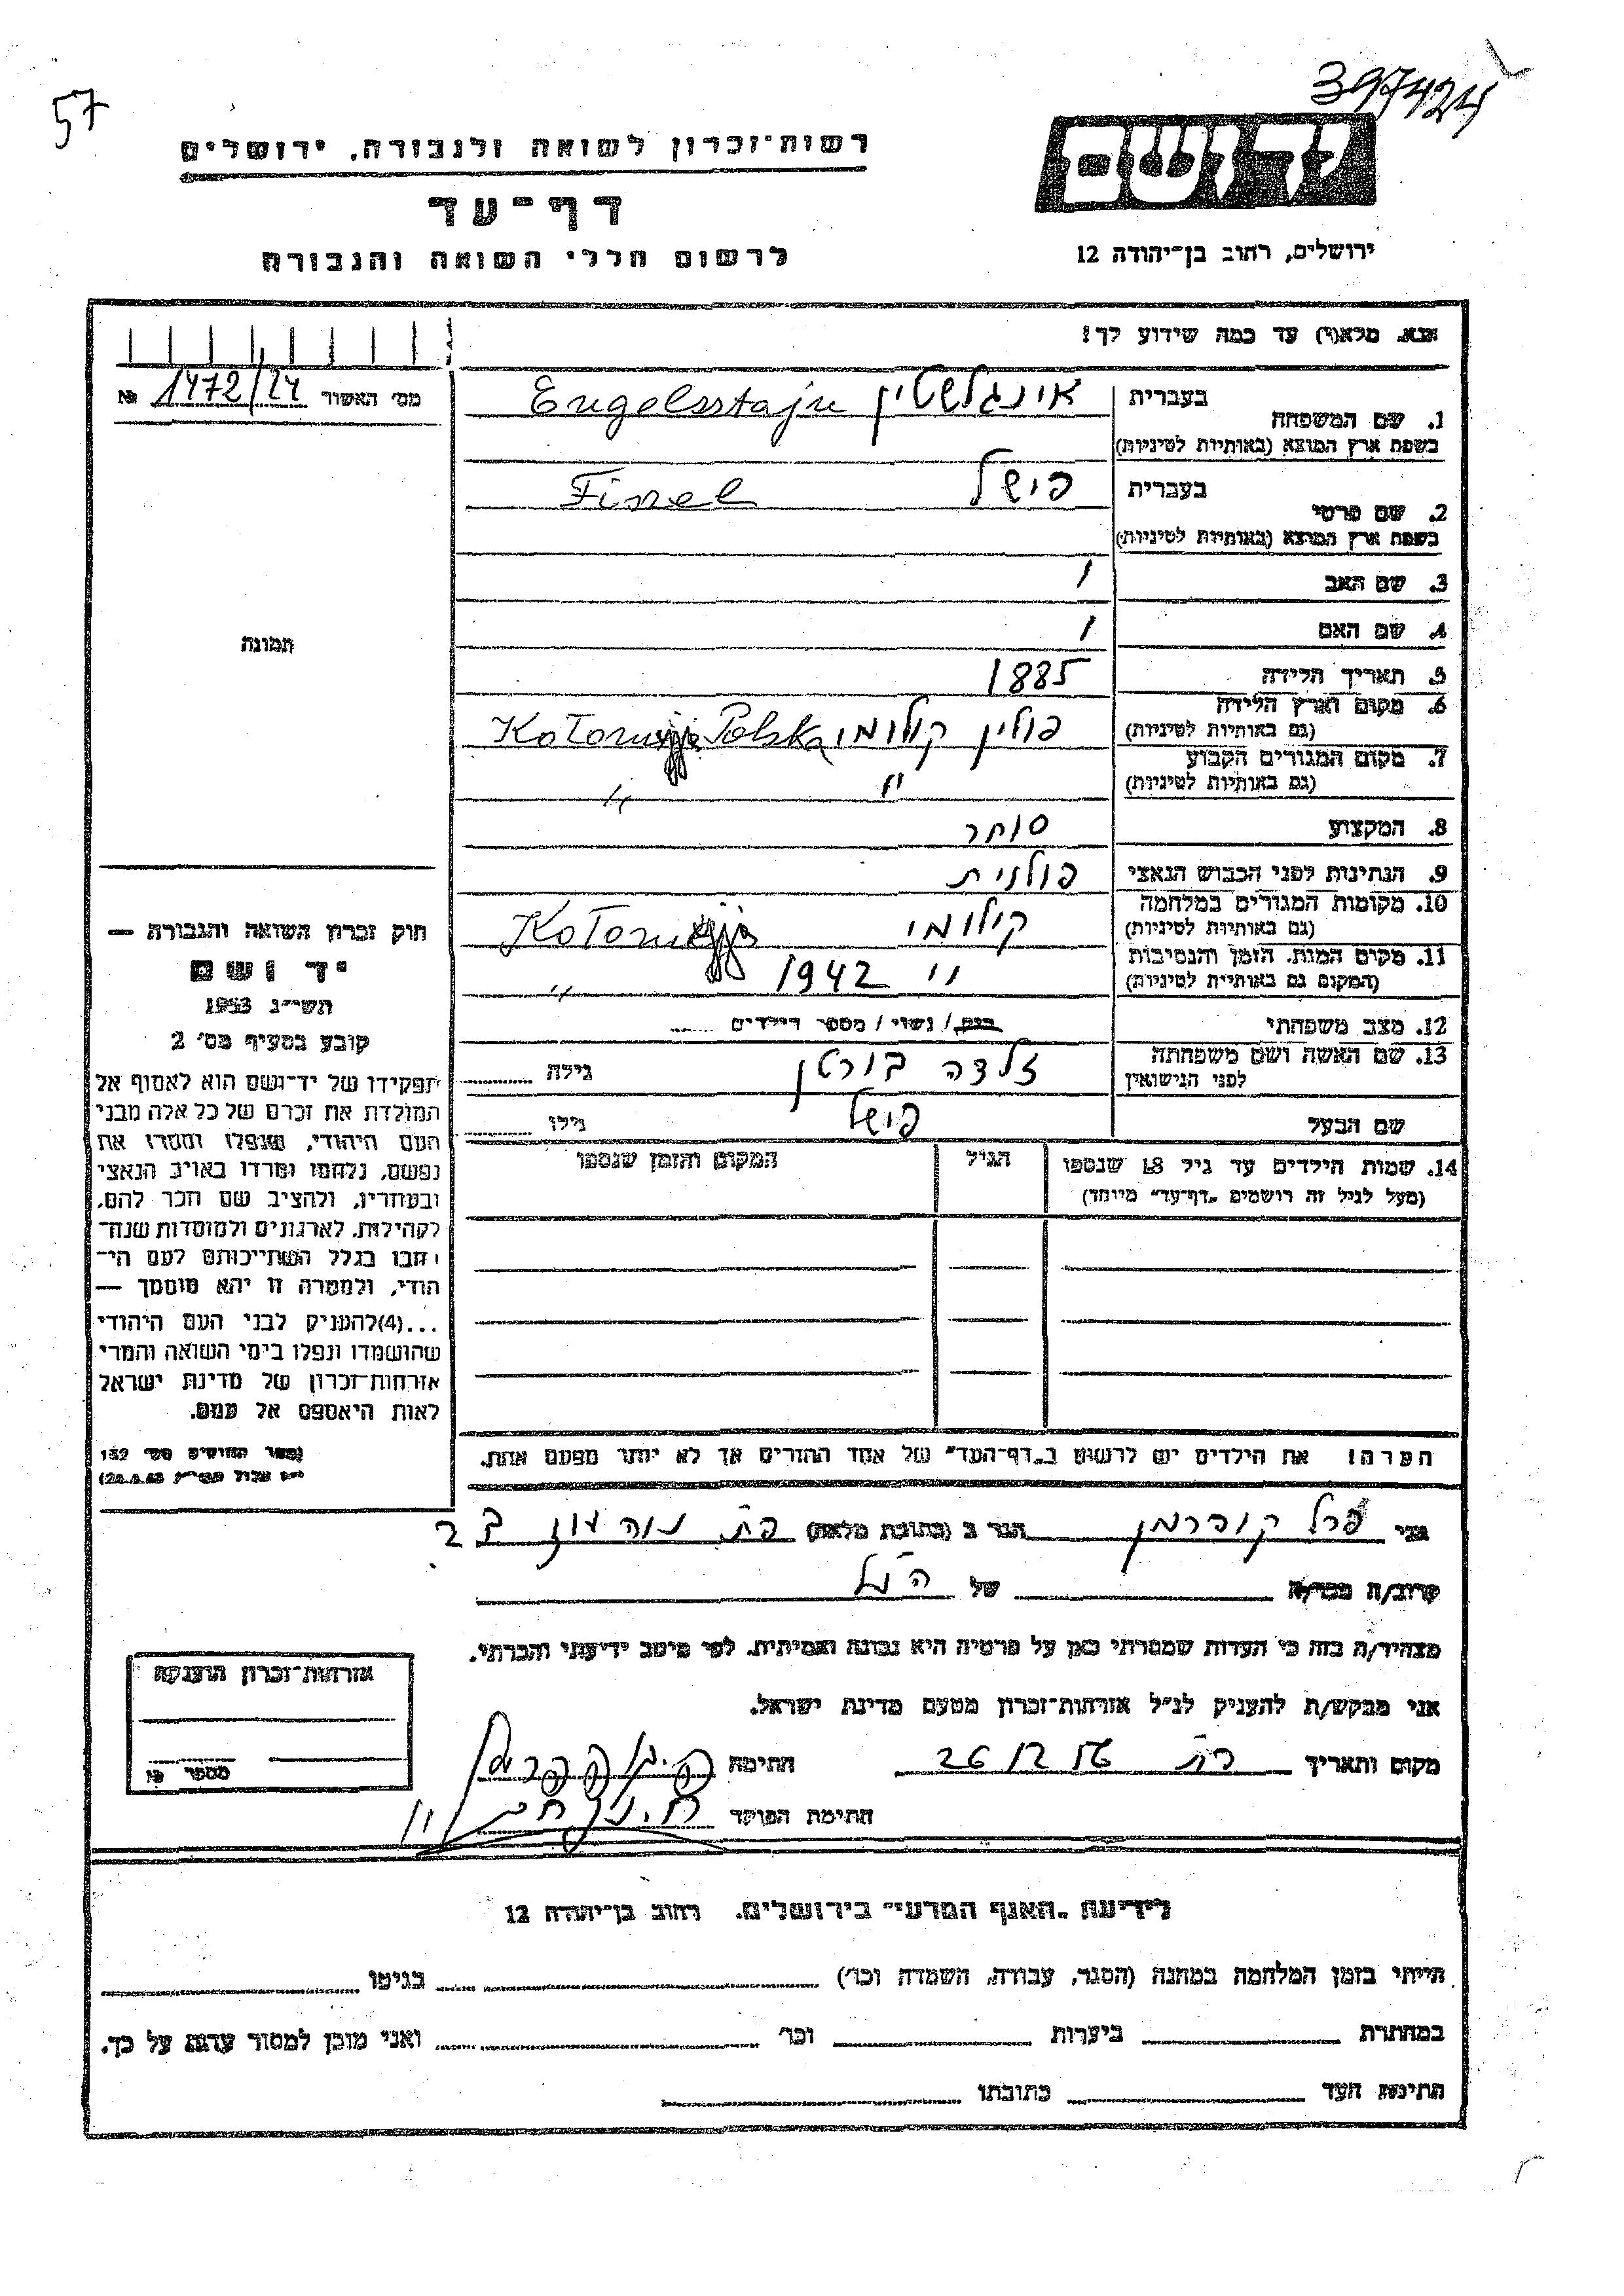 57
397424
רשות־זכרון לשואה ולגבורה, ירושלים
דף־עד
לרשום חללי השואה והגבורה
יד ושם
ירושלים, רחוב בן־יהודה 12
נא מלא(י) עד כמה שידוע לך!
מס׳ האשור 1472/24 №
1. שם המשפחה
בעברית אינגלשטין Engelsstajn
בשפת ארץ המוצא (באותיות לטיניות)
2. שם פרטי
בעברית פישל Fiszel
בשפת ארץ המוצא (באותיות לטיניות)
3. שם האב /
4. שם האם /
5. תאריך הלידה 1885
6. מקום וארץ הלידה פולין קולומי Polska
(גם באותיות לטיניות)
7. מקום המגורים הקבוע "
(גם באותיות לטיניות)
8. המקצוע סוחר
9. הנתינות לפני הכבוש הנאצי פולנית
10. מקומות המגורים במלחמה קולומי
(גם באותיות לטיניות)
11. מקום המות, הזמן והנסיבות " 1942 "
(המקום גם באותיות לטיניות)
12. מצב משפחתי רווק / נשוי / מספר הילדים
13. שם האשה ושם משפחתה זלדה גילה
לפני הנישואין
שם הבעל פישל גילו
14. שמות הילדים עד גיל 18 שנספו הגיל המקום והזמן שנספו
(מעל לגיל זה רושמים „דף־עד" מיוחד)
תמונה
חוק זכרון השואה והגבורה —
יד ושם
תשי״ג 1953
קובע בסעיף מס׳ 2
תפקידו של יד־ושם הוא לאסוף אל
המולדת את זכרם של כל אלה מבני
העם היהודי, שנפלו ומסרו את
נפשם, נלחמו ומרדו באויב הנאצי
ובעוזריו, ולהציב שם וזכר להם,
לקהילות, לארגונים ולמוסדות שנח־
רבו בגלל השתייכותם לעם הי־
הודי, ולמטרה זו יהא מוסמך —
...(4)להעניק לבני העם היהודי
שהושמדו ונפלו בימי השואה והמרי
אזרחות־זכרון של מדינת ישראל
לאות היאספם אל עמם.
(ספר החוקים מס׳ 132
הערה! את הילדים יש לרשום ב„דף־העד" של אחד ההורים אך לא יותר מפעם אחת.
אני פרל קופרמן הגר ב (כתובת מלאה)
קרוב/ה מכר/ה של הנ״ל
מצהיר/ה בזה כי העדות שמסרתי כאן על פרטיה היא נכונה ואמיתית, לפי מיטב ידיעתי והכרתי.
אני מבקש/ת להעניק לנ״ל אזרחות־זכרון מטעם מדינת ישראל.
מקום ותאריך 26 12 56 חתימה
חתימת הפוקד
אזרחות־זכרון הוענקה
מספר
לידיעת „האגף המדעי" בירושלים, רחוב בן־יהודה 12
הייתי בזמן המלחמה במחנה (הסגר, עבודה, השמדה וכו׳) בגיטו
במחתרת ביערות וכו׳ ואני מוכן למסור עדות על כך.
חתימת העד כתובתו